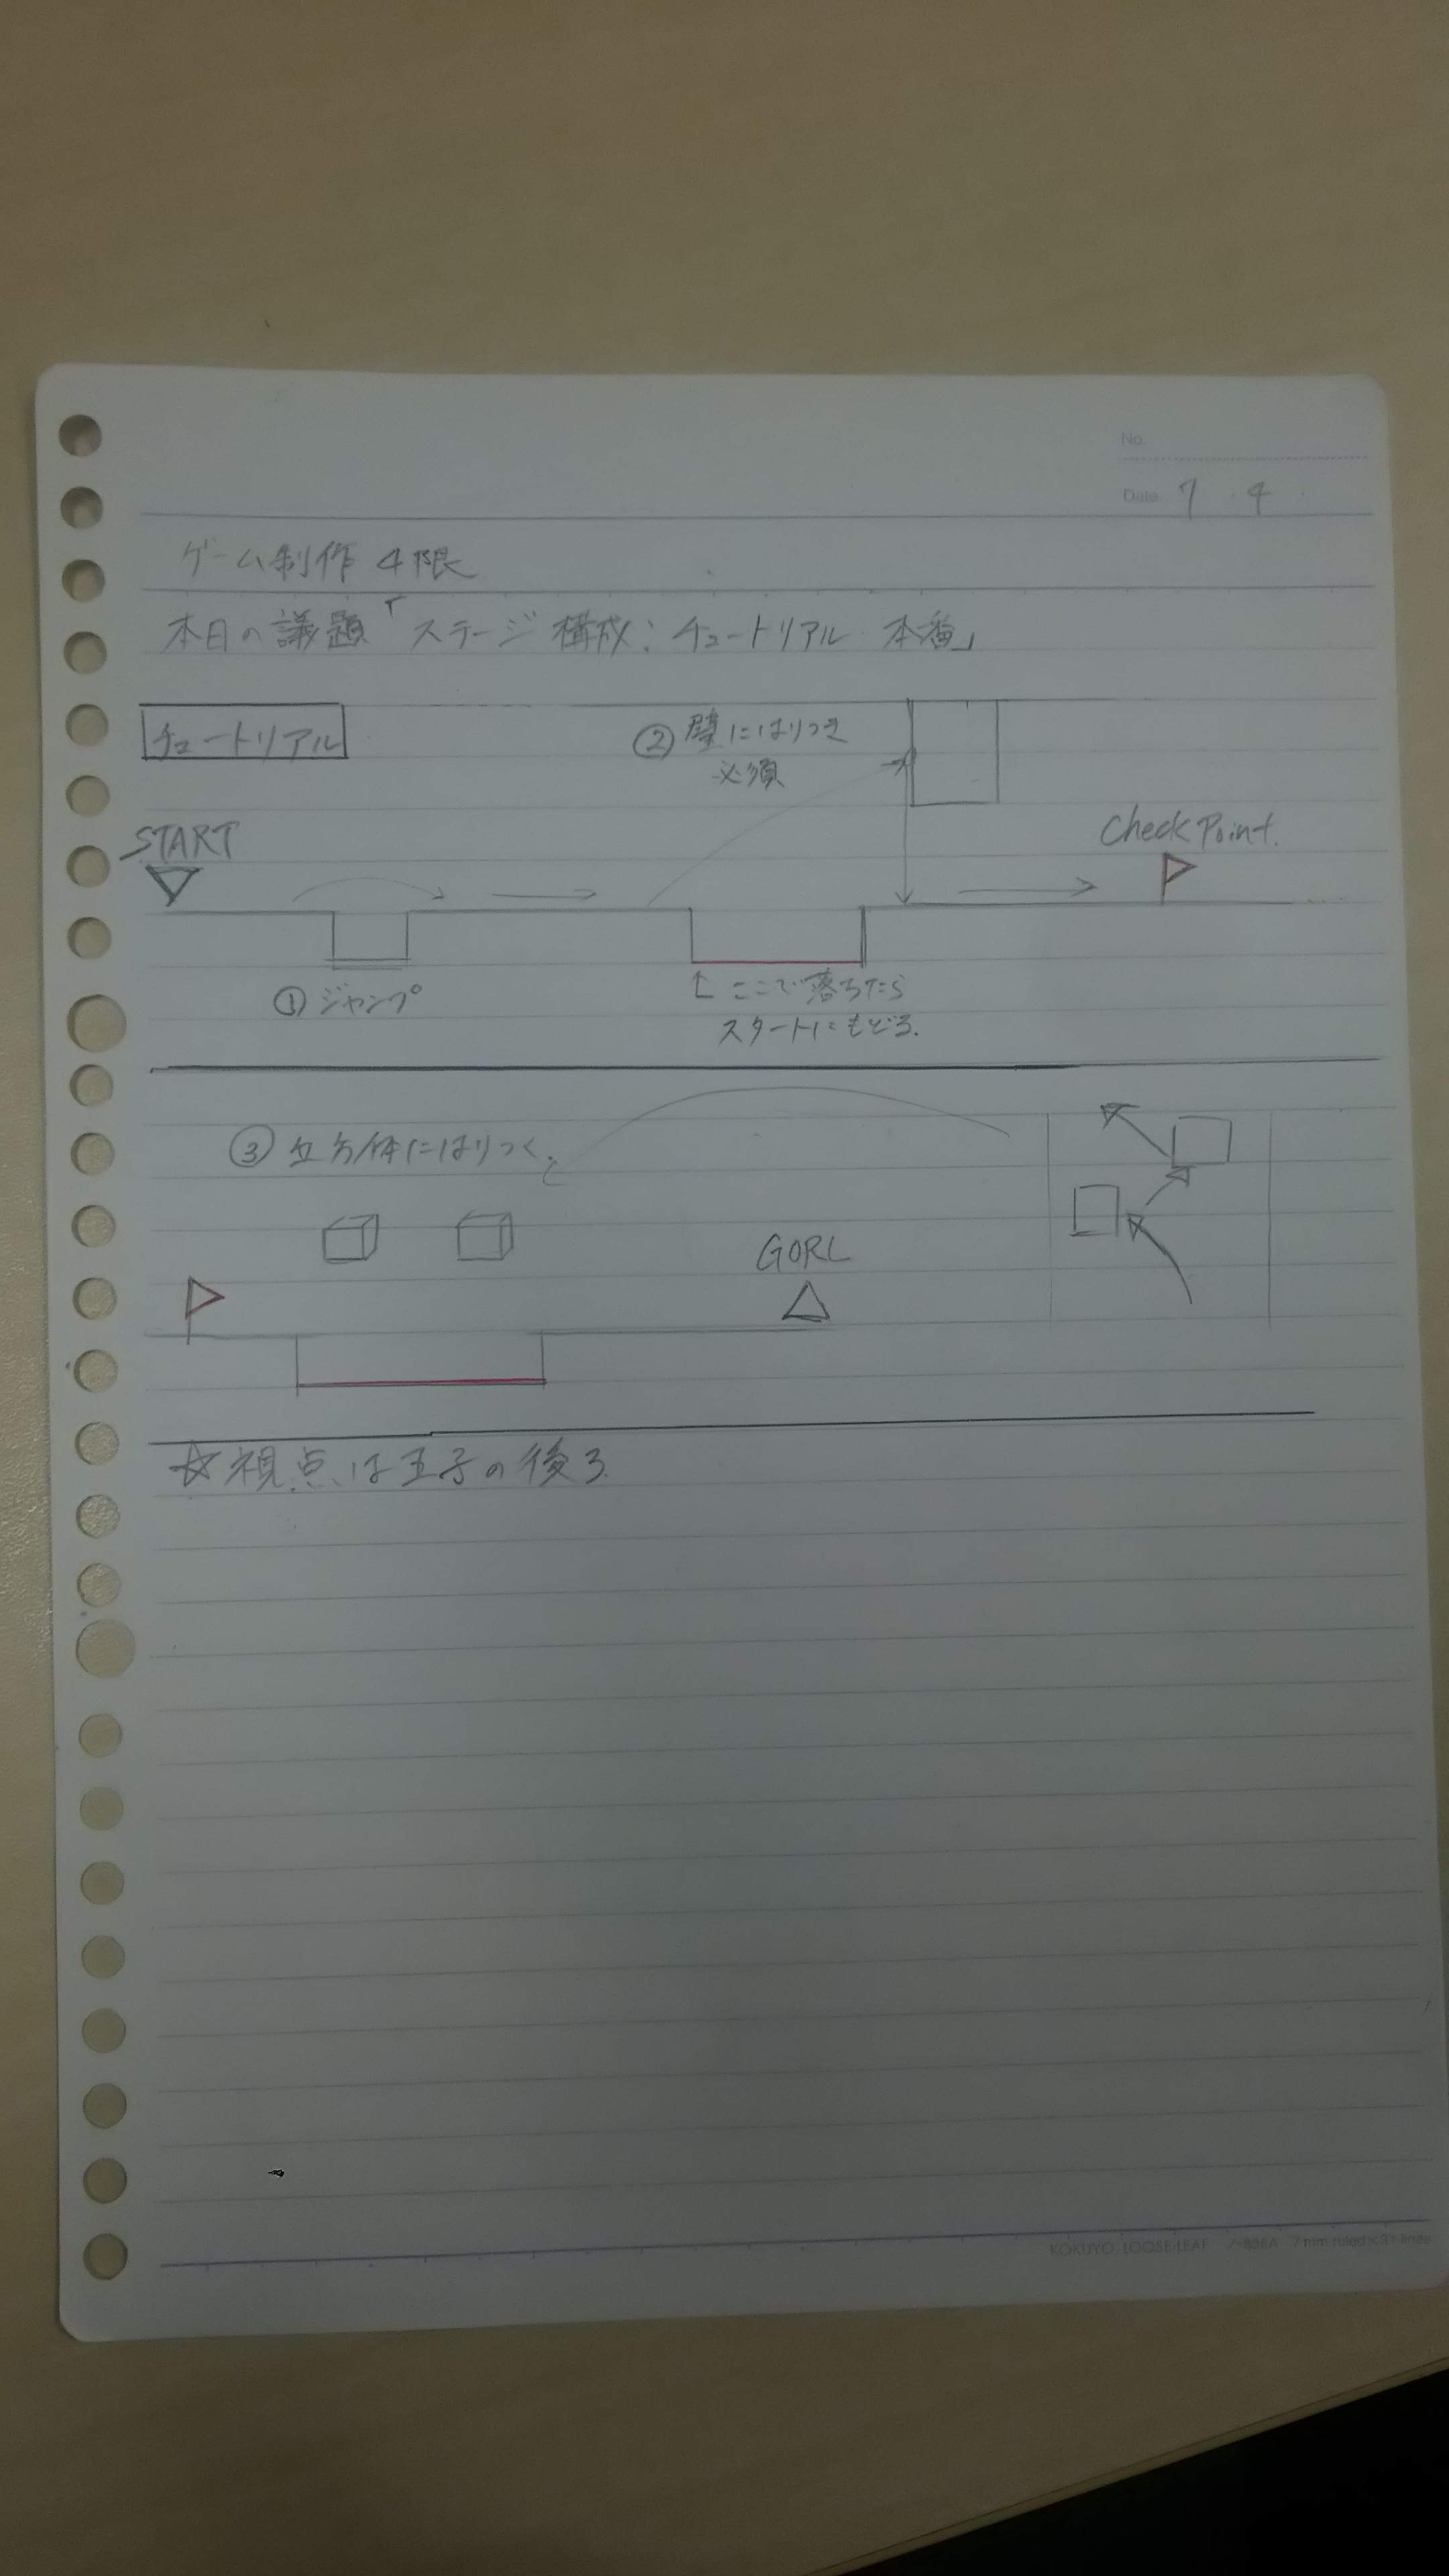 No.
Date 7 . 4 .
ゲーム制作 4限
本日の議題「ステージ構成:チュートリアル 本番」
チュートリアル
②壁にはりつき
必須
START
Check Point.
①ジャンプ
ここで落ちたら
スタートにもどる.
③立方体にはりつく.
GORL
☆視点は王子の後ろ
KOKUYO LOOSE-LEAF ノ-836A 7 mm ruled × 31 lines